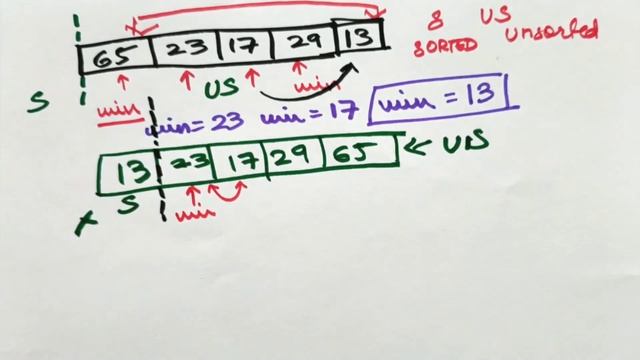 S US
SORTED Unsorted
65 23 17 29 13
S min US min
min = 23 min = 17 min = 13
13 23 17 29 65 ← US
S min